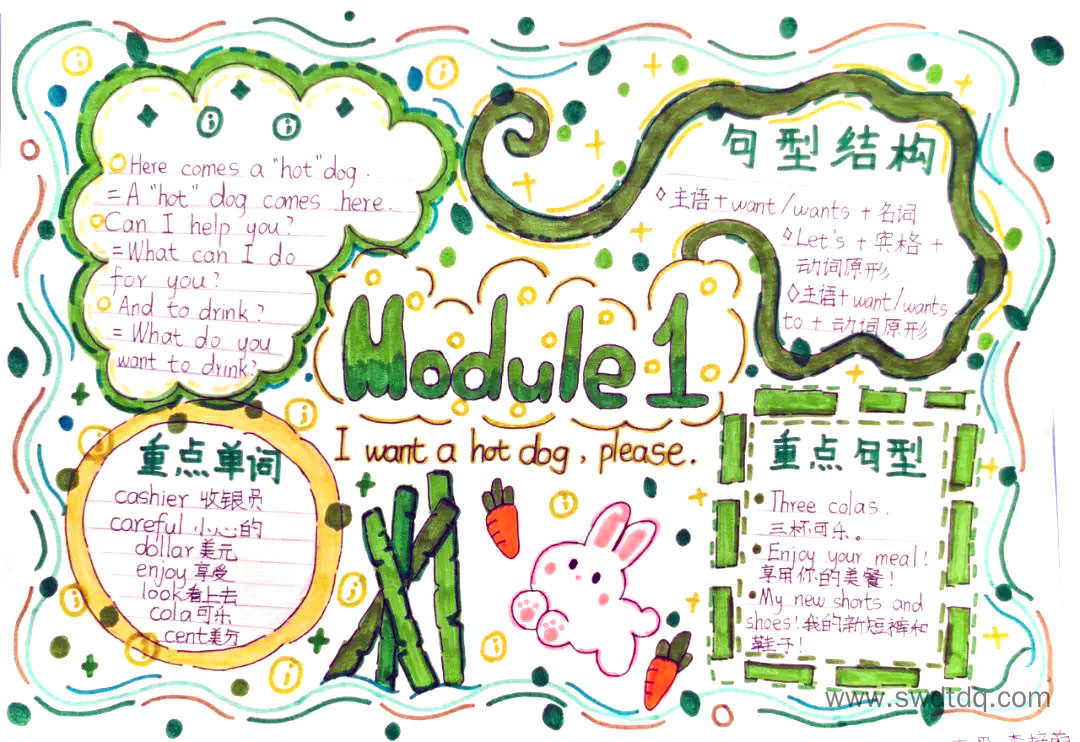 Here comes a "hot" dog.
= A "hot" dog comes here.
Can I help you?
=What can I do
for you?
And to drink?
= What do you
want to drink?
句型结构
◇主语+want/wants+名词
◇Let's+宾格+
动词原形
◇主语+want/wants
to+动词原形
Module 1
I want a hot dog, please.
重点单词
cashier 收银员
careful 小心的
dollar 美元
enjoy 享受
look看上去
cola可乐
cent美分
重点句型
Three colas.
三杯可乐。
Enjoy your meal!
享用你的美餐!
My new shorts and
shoes!我的新短裤和
鞋子!
www.swdtdq.com